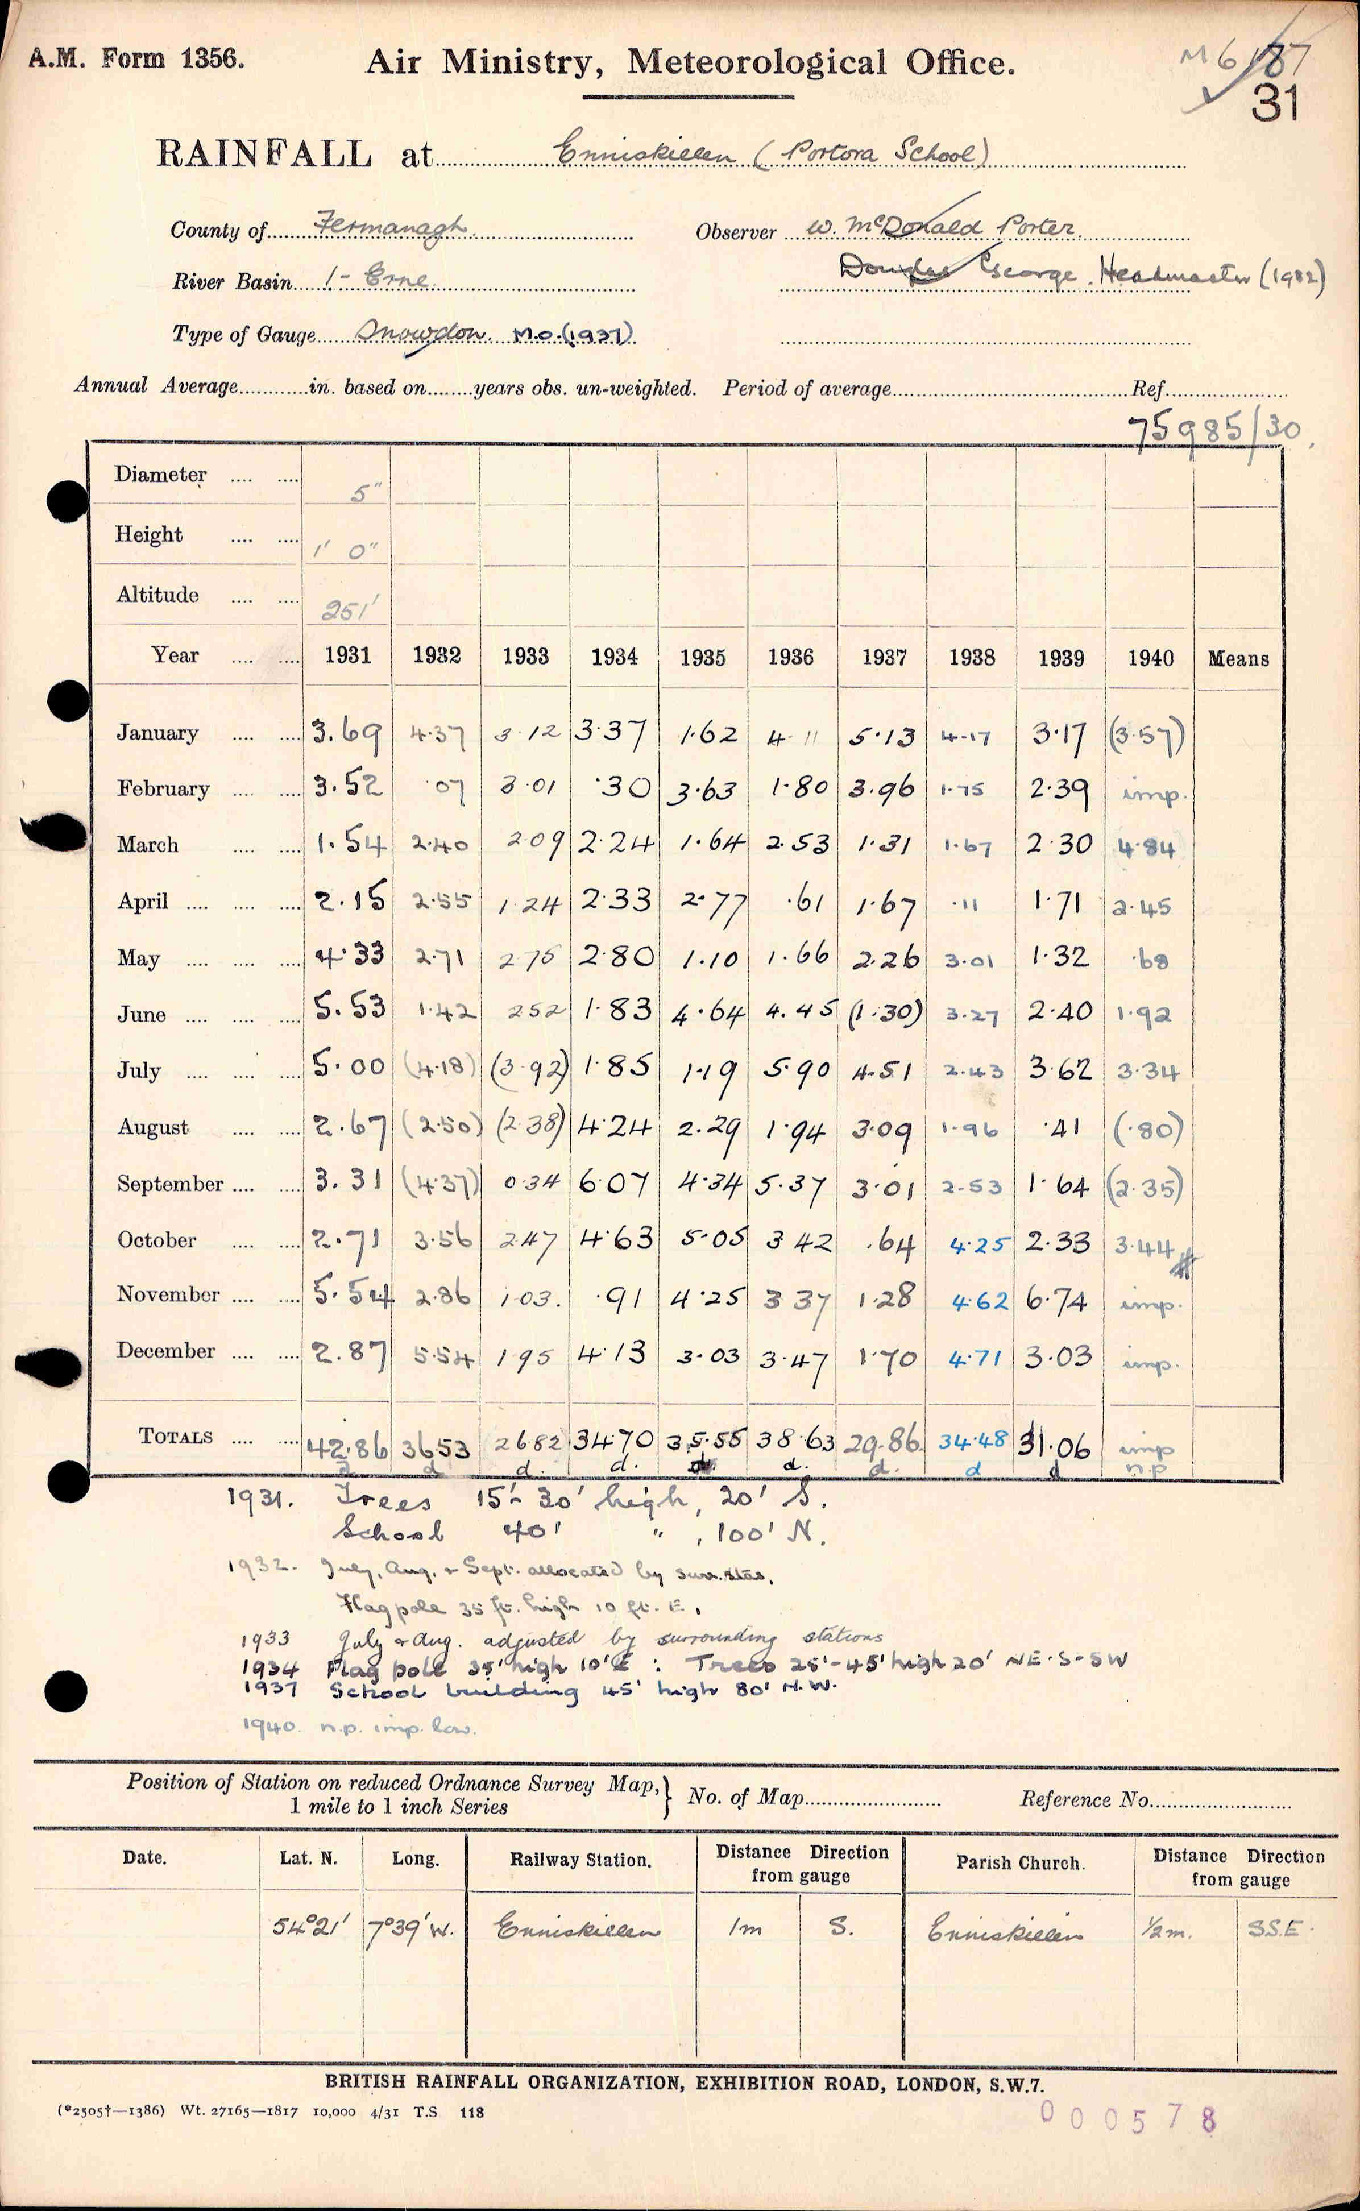 A.M. Form 1356. Air Ministry, Meteorological Office. M 6187
31
RAINFALL at Enniskillen (Portora School)
County of Fermanagh Observer W. McDonald Porter.
River Basin 1 - Erne Douglas George. Headmaster (1982)
Type of Gauge Snowdon. M.O.(1937)
Annual Average in. based on years obs. un-weighted. Period of average Ref.
75985/30.
Diameter 5"
Height 1' 0"
Altitude 251'
Year 1931 1932 1933 1934 1935 1936 1937 1938 1939 1940 Means
January 3.69 4.37 3.12 3.37 1.62 4.11 5.13 4.17 3.17 (3.57)
February 3.52 .07 3.01 .30 3.63 1.80 3.96 1.75 2.39 imp.
March 1.54 2.40 2.09 2.24 1.64 2.53 1.31 1.67 2.30 4.84
April 2.15 2.55 1.24 2.33 2.77 .61 1.67 .11 1.71 2.45
May 4.33 2.71 2.75 2.80 1.10 1.66 2.26 3.01 1.32 .68
June 5.53 1.42 2.52 1.83 4.64 4.45 (1.30) 3.27 2.40 1.92
July 5.00 (4.18) (3.92) 1.85 1.19 5.90 4.51 2.43 3.62 3.34
August 2.67 (2.50) (2.38) 4.24 2.29 1.94 3.09 1.96 .41 (.80)
September 3.31 (4.37) 0.34 6.07 4.34 5.37 3.01 2.53 1.64 (2.35)
October 2.71 3.56 2.47 4.63 5.05 3.42 .64 4.25 2.33 3.44
November 5.54 2.86 1.03. .91 4.25 3.37 1.28 4.62 6.74 imp.
December 2.87 5.54 1.95 4.13 3.03 3.47 1.70 4.71 3.03 imp.
TOTALS 42.86 36.53 26.82 34.70 35.55 38.63 29.86 34.48 31.06 imp
d d. d. d. d. d d n.p
1931. Trees 15'-30' high, 20' S.
School 40' " , 100' N.
1932. July, Aug. & Sept. allocated by surr. stas.
Flag pole 35 ft. high 10 ft. E.
1933 July & Aug. adjusted by surrounding stations
1934 Flag pole 35' high 10' E : Trees 25'-45' high 20' NE-S-SW
1937 School building 45' high 80' N.W.
1940. n.p. imp. low.
Position of Station on reduced Ordnance Survey Map,
1 mile to 1 inch Series } No. of Map Reference No.
Date. Lat. N. Long. Railway Station. Distance Direction from gauge Parish Church. Distance Direction from gauge
54°21' 7°39' W. Enniskillen 1m S. Enniskillen ½m. S.S.E.
BRITISH RAINFALL ORGANIZATION, EXHIBITION ROAD, LONDON, S.W.7.
(*2505†—1386) Wt. 27165—1817 10,000 4/31 T.S 118
000578